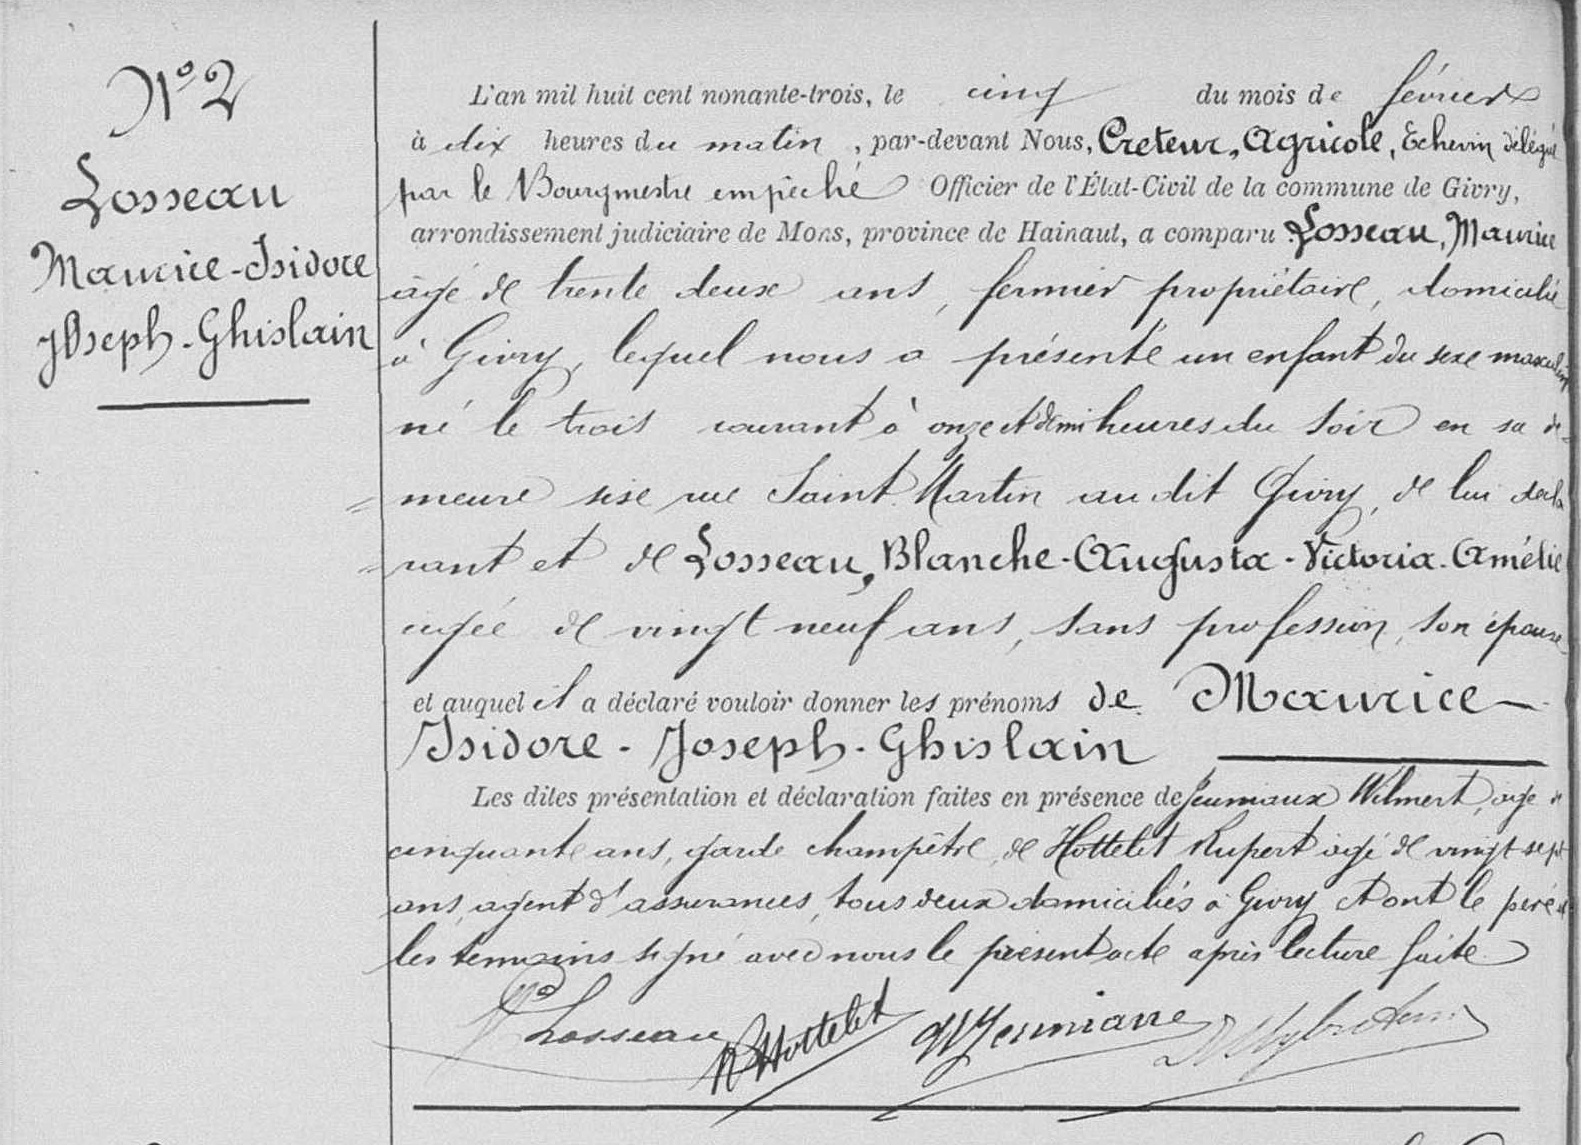 N° 2
Losseau
Maurice-Isidore
Joseph-Ghislain
L'an mil huit cent nonante-trois, le cinq du mois de février
à dix heures du matin, par-devant Nous, Creteur, Agricole, Echevin délégué
par le Bourgmestre empêché Officier de l'État-Civil de la commune de Givry,
arrondissement judiciaire de Mons, province de Hainaut, a comparu Losseau, Maurice
âgé de trente deux ans, fermier propriétaire, domicilié
à Givry, lequel nous a présenté un enfant du sexe masculin
né le trois courant à onze et demi heures du soir en sa de-
meure sise rue Saint Martin audit Givry, de lui décla
rant et de Losseau, Blanche-Augusta-Victoria-Amélie
agée de vingt neuf ans, sans profession, son épouse
et auquel il a déclaré vouloir donner les prénoms de Maurice-
Isidore-Joseph-Ghislain
Les dites présentation et déclaration faites en présence de Jeumiaux Wilmert, âgé de
cinquante ans, garde champêtre, de Hottelet Rupert âgé de vingt sept
ans, agent d'assurances, tous deux domiciliés à Givry et ont le père et
les temoins signé avec nous le présent acte après lecture faite
Losseau R Hottelet W Jeumiaux